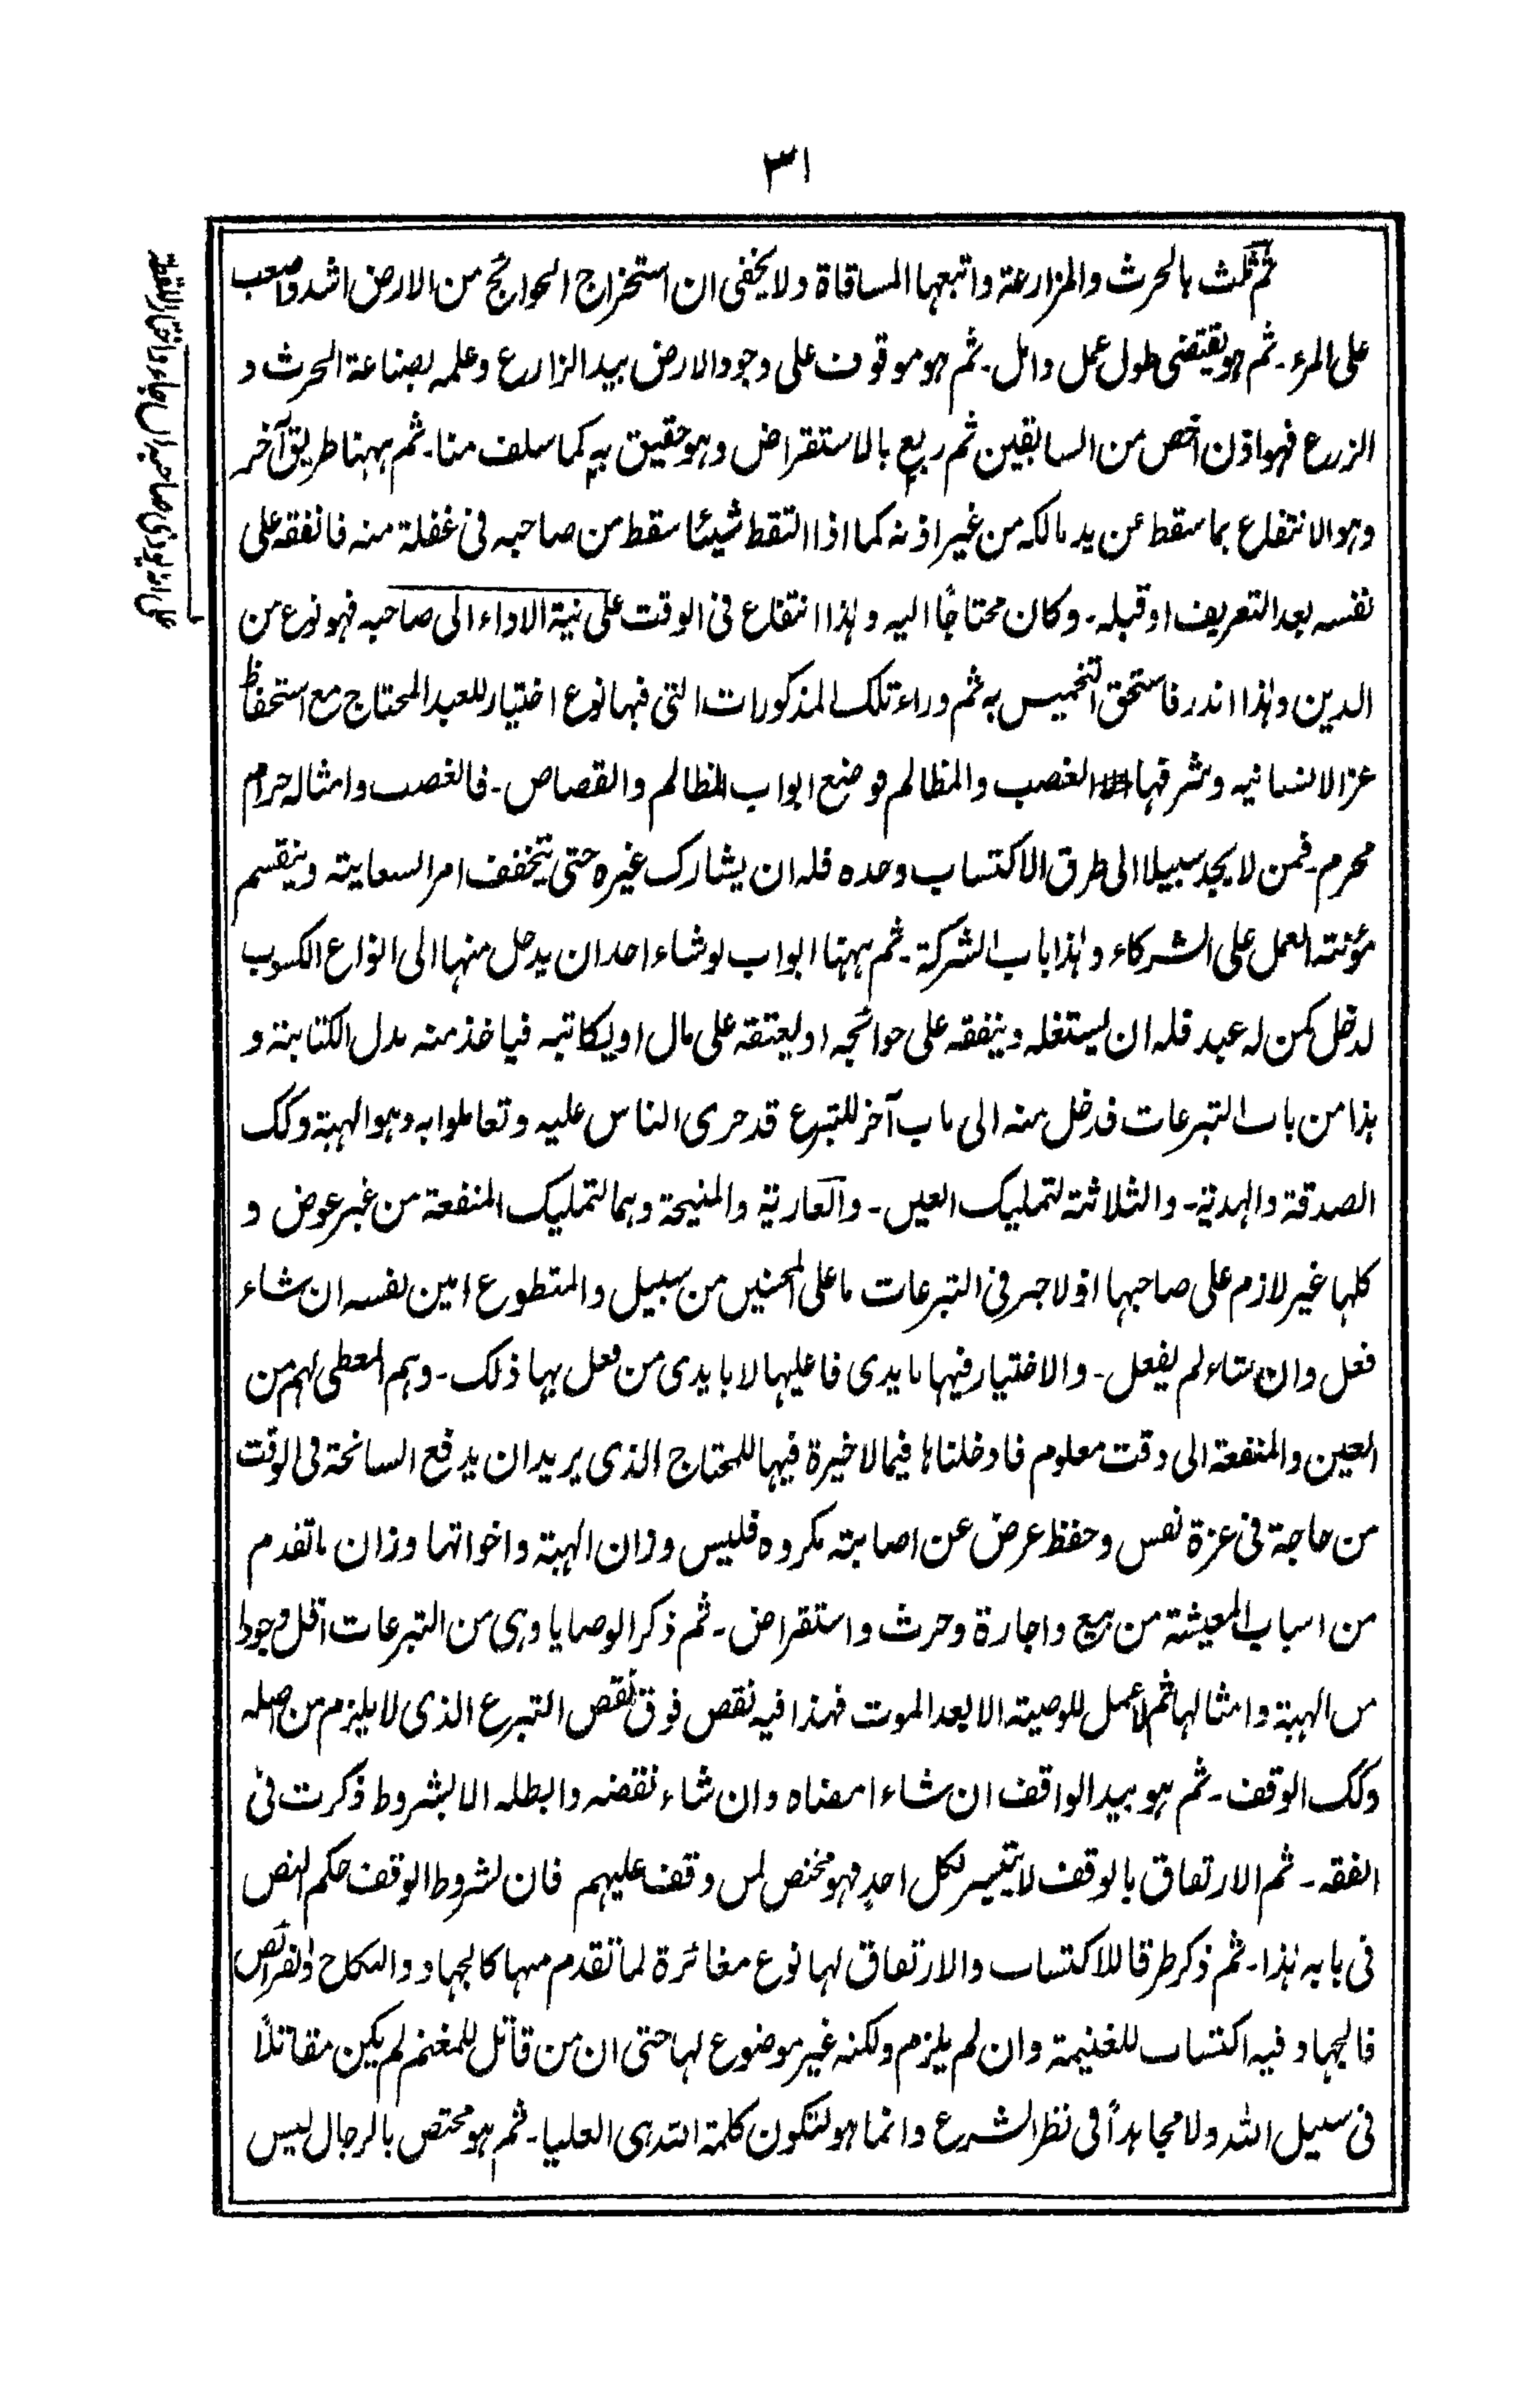 ٣١
ثم ثلث بالحرث والمزارعة واتبعها المساقاة ولا يخفى ان استخراج الحوائج من الارض اشد واصعب
على المرء ـ ثم هو يقتضى طول عمل وامل ـ ثم هو موقوف على وجود الارض بيد الزارع وعلمه بصناعة الحرث و
الزرع فهو اذن اخص من السابقين ثم ربع بالاستقراض وهو حقيق به كما سلف منا ـ ثم ههنا طريق آخر
وهو الانتفاع بما سقط عن يد مالكه من غير اذنه كما اذا التقط شيئا سقط من صاحبه فى غفلة منه فانفقه على
نفسه بعد التعريف او قبله ـ وكان محتاجًا اليه وهذا انتفاع فى الوقت على نية الاداء الى صاحبه فهو نوع من
الدين وهذا اندر فاستحق التخميس به ثم وراء تلك المذكورات التى فيها نوع اختيار للعبد المحتاج مع استحفاظ
عز الانسانيه وشرفها الغصب والمظالم فوضع ابواب المظالم والقصاص ـ فالغصب وامثاله حرام
محرم ـ فمن لا يجد سبيلا الى طرق الاكتساب وحده فله ان يشارك غيره حتى يتخفف امر السعاية وينقسم
مؤنة العمل على الشركاء وهذا باب الشركة ـ ثم ههنا ابواب لو شاء احد ان يدخل منها الى انواع الكسوب
لدخل كمن له عبد فله ان يستغله وينفقه على حوائجه او يعتقه على مال او يكاتبه فياخذ منه بدل الكتابة و
هذا من باب التبرعات فدخل منه الى باب آخر للتبرع قد جرى الناس عليه وتعاملوا به وهو الهبة وكك
الصدقة والهدية ـ والثلاثة لتمليك العين ـ والعارية والمنيحة وهما لتمليك المنفعة من غير عوض و
كلها غير لازم على صاحبها اذ لا جبر فى التبرعات ما على المحسنين من سبيل والمتطوع امين نفسه ان شاء
فعل وان شاء لم يفعل ـ والاختيار فيها بايدى فاعليها لا بايدى من فعل بها ذلك ـ وهم المعطى لهم من
العين والمنفعة الى وقت معلوم فادخلناها فيما لا خيرة فيها للمحتاج الذى يريد ان يدفع السانحة فى الوقت
من حاجة فى عزة نفس وحفظ عرض عن اصابة مكروه فليس وزان الهبة واخواتها وزان ما تقدم
من اسباب المعيشة من بيع واجارة وحرث واستقراض ـ ثم ذكر الوصايا وهى من التبرعات اقل وجودا
من الهبة وامثالها ثم لا عمل للوصية الا بعد الموت فهذا فيه نقص فوق نقص التبرع الذى لا يلزم من اصله
وكك الوقف ـ ثم هو بيد الواقف ان شاء امضاه وان شاء نقضه وابطله الا بشروط ذكرت فى
الفقه ـ ثم الارتفاق بالوقف لا يتيسر لكل احد فهو مختص لمن وقف عليهم فان لشروط الوقف حكم النص
فى بابه هذا ـ ثم ذكر طرقا للاكتساب والارتفاق لها نوع مغائرة لما تقدم منها كالجهاد والنكاح والفرائض
فالجهاد فيه اكتساب للغنيمة وان لم يلزم ولكنه غير موضوع لها حتى ان من قاتل للمغنم لم يكن مقاتلًا
فى سبيل الله ولا مجاهدًا فى نظر الشرع وانما هو لتكون كلمة الله هى العليا ـ ثم هو مختص بالرجال ليس